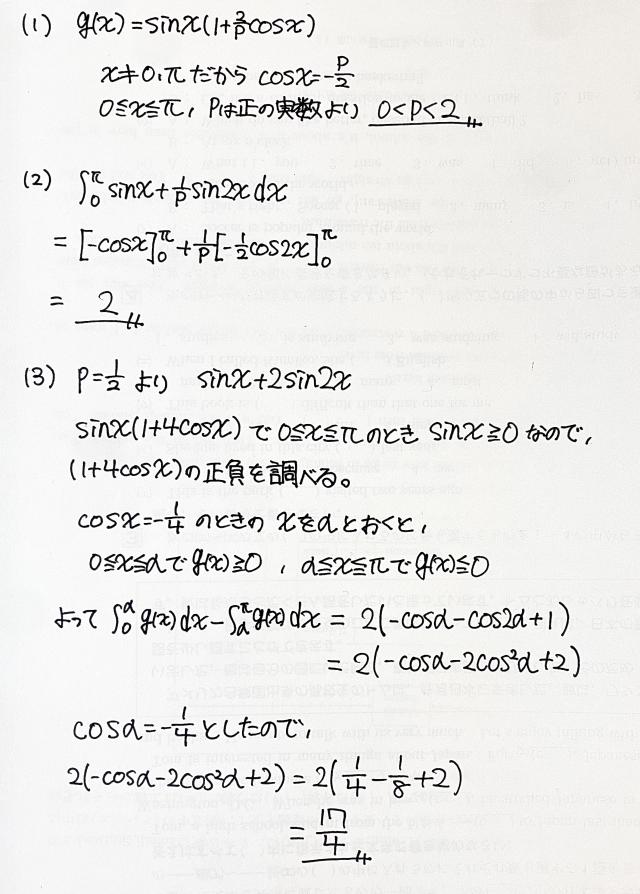 (1) g(x)=sinx(1+2/p cosx)
x≠0,πだから cosx=-P/2
0≦x≦π, Pは正の実数より 0<P<2
(2) ∫₀^π sinx+1/P sin2x dx
= [-cosx]₀^π+1/P[-1/2cos2x]₀^π
= 2
(3) P=1/2 より sinx+2sin2x
sinx(1+4cosx)で0≦x≦πのとき sinx≧0なので,
(1+4cosx)の正負を調べる。
cosx=-1/4 のときの xをαとおくと,
0≦x≦αでg(x)≧0 , α≦x≦πでg(x)≦0
よって ∫₀^α g(x)dx-∫_α^π g(x)dx = 2(-cosα-cos2α+1)
= 2(-cosα-2cos²α+2)
cosα=-1/4としたので,
2(-cosα-2cos²α+2)=2(1/4-1/8+2)
=17/4